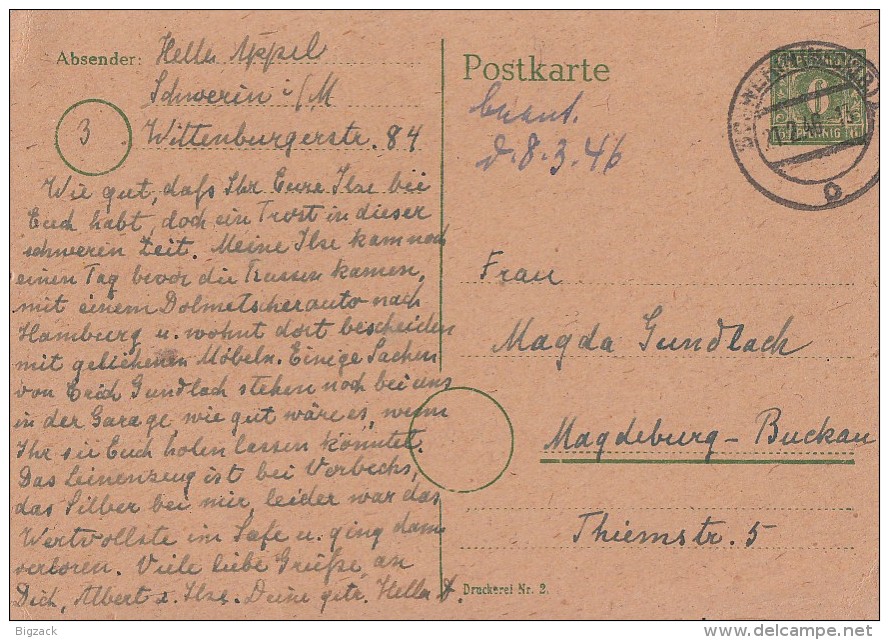 Absender: Hella Appel
Schwerin i/M
3 Wittenburgerstr. 84
Wie gut, dafs Ihr Eure Ilse bei
Euch habt, doch ein Trost in dieser
schweren Zeit. Meine Ilse kam noch
einen Tag bevor die Russen kamen,
mit einem Dolmetscherauto nach
Hamburg u. wohnt dort bescheiden
mit geliehenen Möbeln. Einige Sachen
von Erich Gundlach stehen noch bei uns
in der Garage wie gut wäre es, wenn
Ihr sie Euch holen lassen könntet.
Das Leinenzeug ist bei Verbechs,
das Silber bei mir, leider war das
Wertvollste im Safe u. ging dann
verloren. Viele liebe Grüße, an
Dich, Albert u. Ilse. Deine getr. Hella A.
Postkarte
d. 8.3.46
6 PFENNIG 6
SCHWERIN
Frau
Magda Gundlach
Magdeburg-Buckau
Thiemstr. 5
Druckerei Nr. 2.
Bigzack